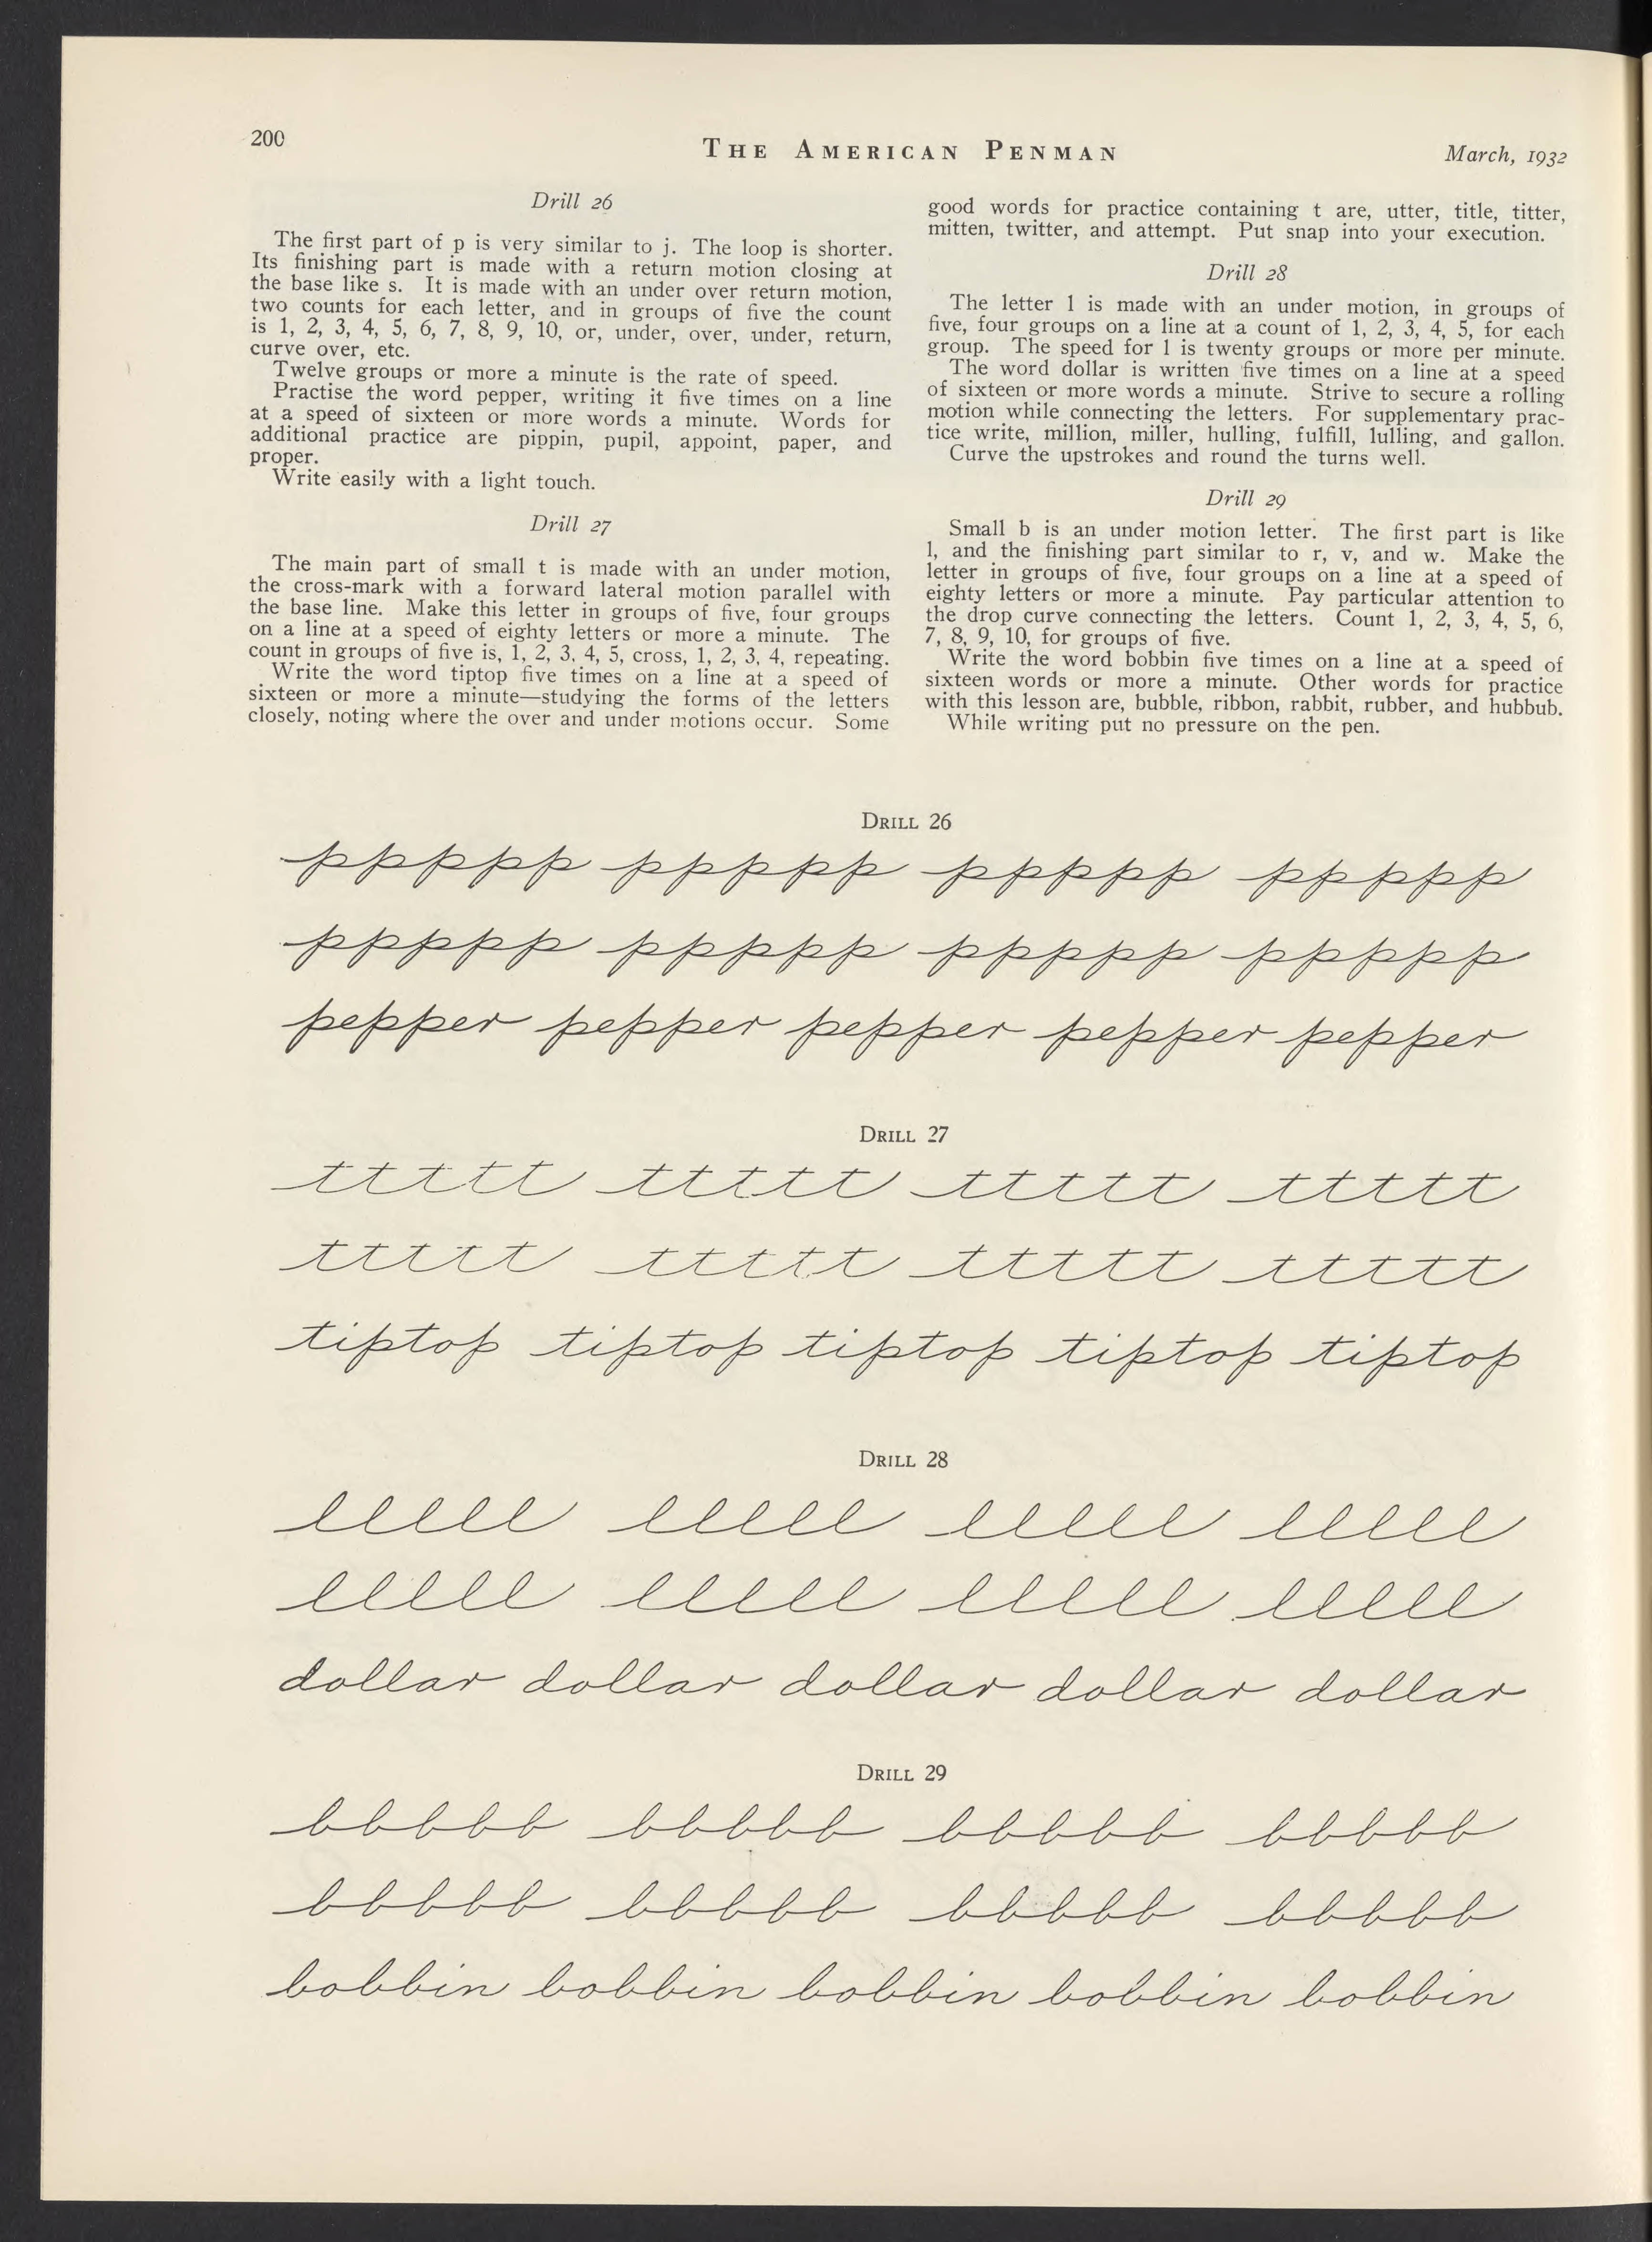 200
THE AMERICAN PENMAN
March, 1932
Drill 26
The first part of p is very similar to j. The loop is shorter.
Its finishing part is made with a return motion closing at
the base like s. It is made with an under over return motion,
two counts for each letter, and in groups of five the count
is 1, 2, 3, 4, 5, 6, 7, 8, 9, 10, or, under, over, under, return,
curve over, etc.
Twelve groups or more a minute is the rate of speed.
Practise the word pepper, writing it five times on a line
at a speed of sixteen or more words a minute. Words for
additional practice are pippin, pupil, appoint, paper, and
proper.
Write easily with a light touch.
Drill 27
The main part of small t is made with an under motion,
the cross-mark with a forward lateral motion parallel with
the base line. Make this letter in groups of five, four groups
on a line at a speed of eighty letters or more a minute. The
count in groups of five is, 1, 2, 3, 4, 5, cross, 1, 2, 3, 4, repeating.
Write the word tiptop five times on a line at a speed of
sixteen or more a minute—studying the forms of the letters
closely, noting where the over and under motions occur. Some
good words for practice containing t are, utter, title, titter,
mitten, twitter, and attempt. Put snap into your execution.
Drill 28
The letter l is made with an under motion, in groups of
five, four groups on a line at a count of 1, 2, 3, 4, 5, for each
group. The speed for l is twenty groups or more per minute.
The word dollar is written five times on a line at a speed
of sixteen or more words a minute. Strive to secure a rolling
motion while connecting the letters. For supplementary prac-
tice write, million, miller, hulling, fulfill, lulling, and gallon.
Curve the upstrokes and round the turns well.
Drill 29
Small b is an under motion letter. The first part is like
l, and the finishing part similar to r, v, and w. Make the
letter in groups of five, four groups on a line at a speed of
eighty letters or more a minute. Pay particular attention to
the drop curve connecting the letters. Count 1, 2, 3, 4, 5, 6,
7, 8, 9, 10, for groups of five.
Write the word bobbin five times on a line at a speed of
sixteen words or more a minute. Other words for practice
with this lesson are, bubble, ribbon, rabbit, rubber, and hubbub.
While writing put no pressure on the pen.
DRILL 26
ppppp ppppp ppppp ppppp
ppppp ppppp ppppp ppppp
pepper pepper pepper pepper pepper
DRILL 27
ttttt ttttt ttttt ttttt
ttttt ttttt ttttt ttttt
tiptop tiptop tiptop tiptop tiptop
DRILL 28
lllll lllll lllll lllll
lllll lllll lllll lllll
dollar dollar dollar dollar dollar
DRILL 29
bbbbb bbbbb bbbbb bbbbb
bbbbb bbbbb bbbbb bbbbb
bobbin bobbin bobbin bobbin bobbin